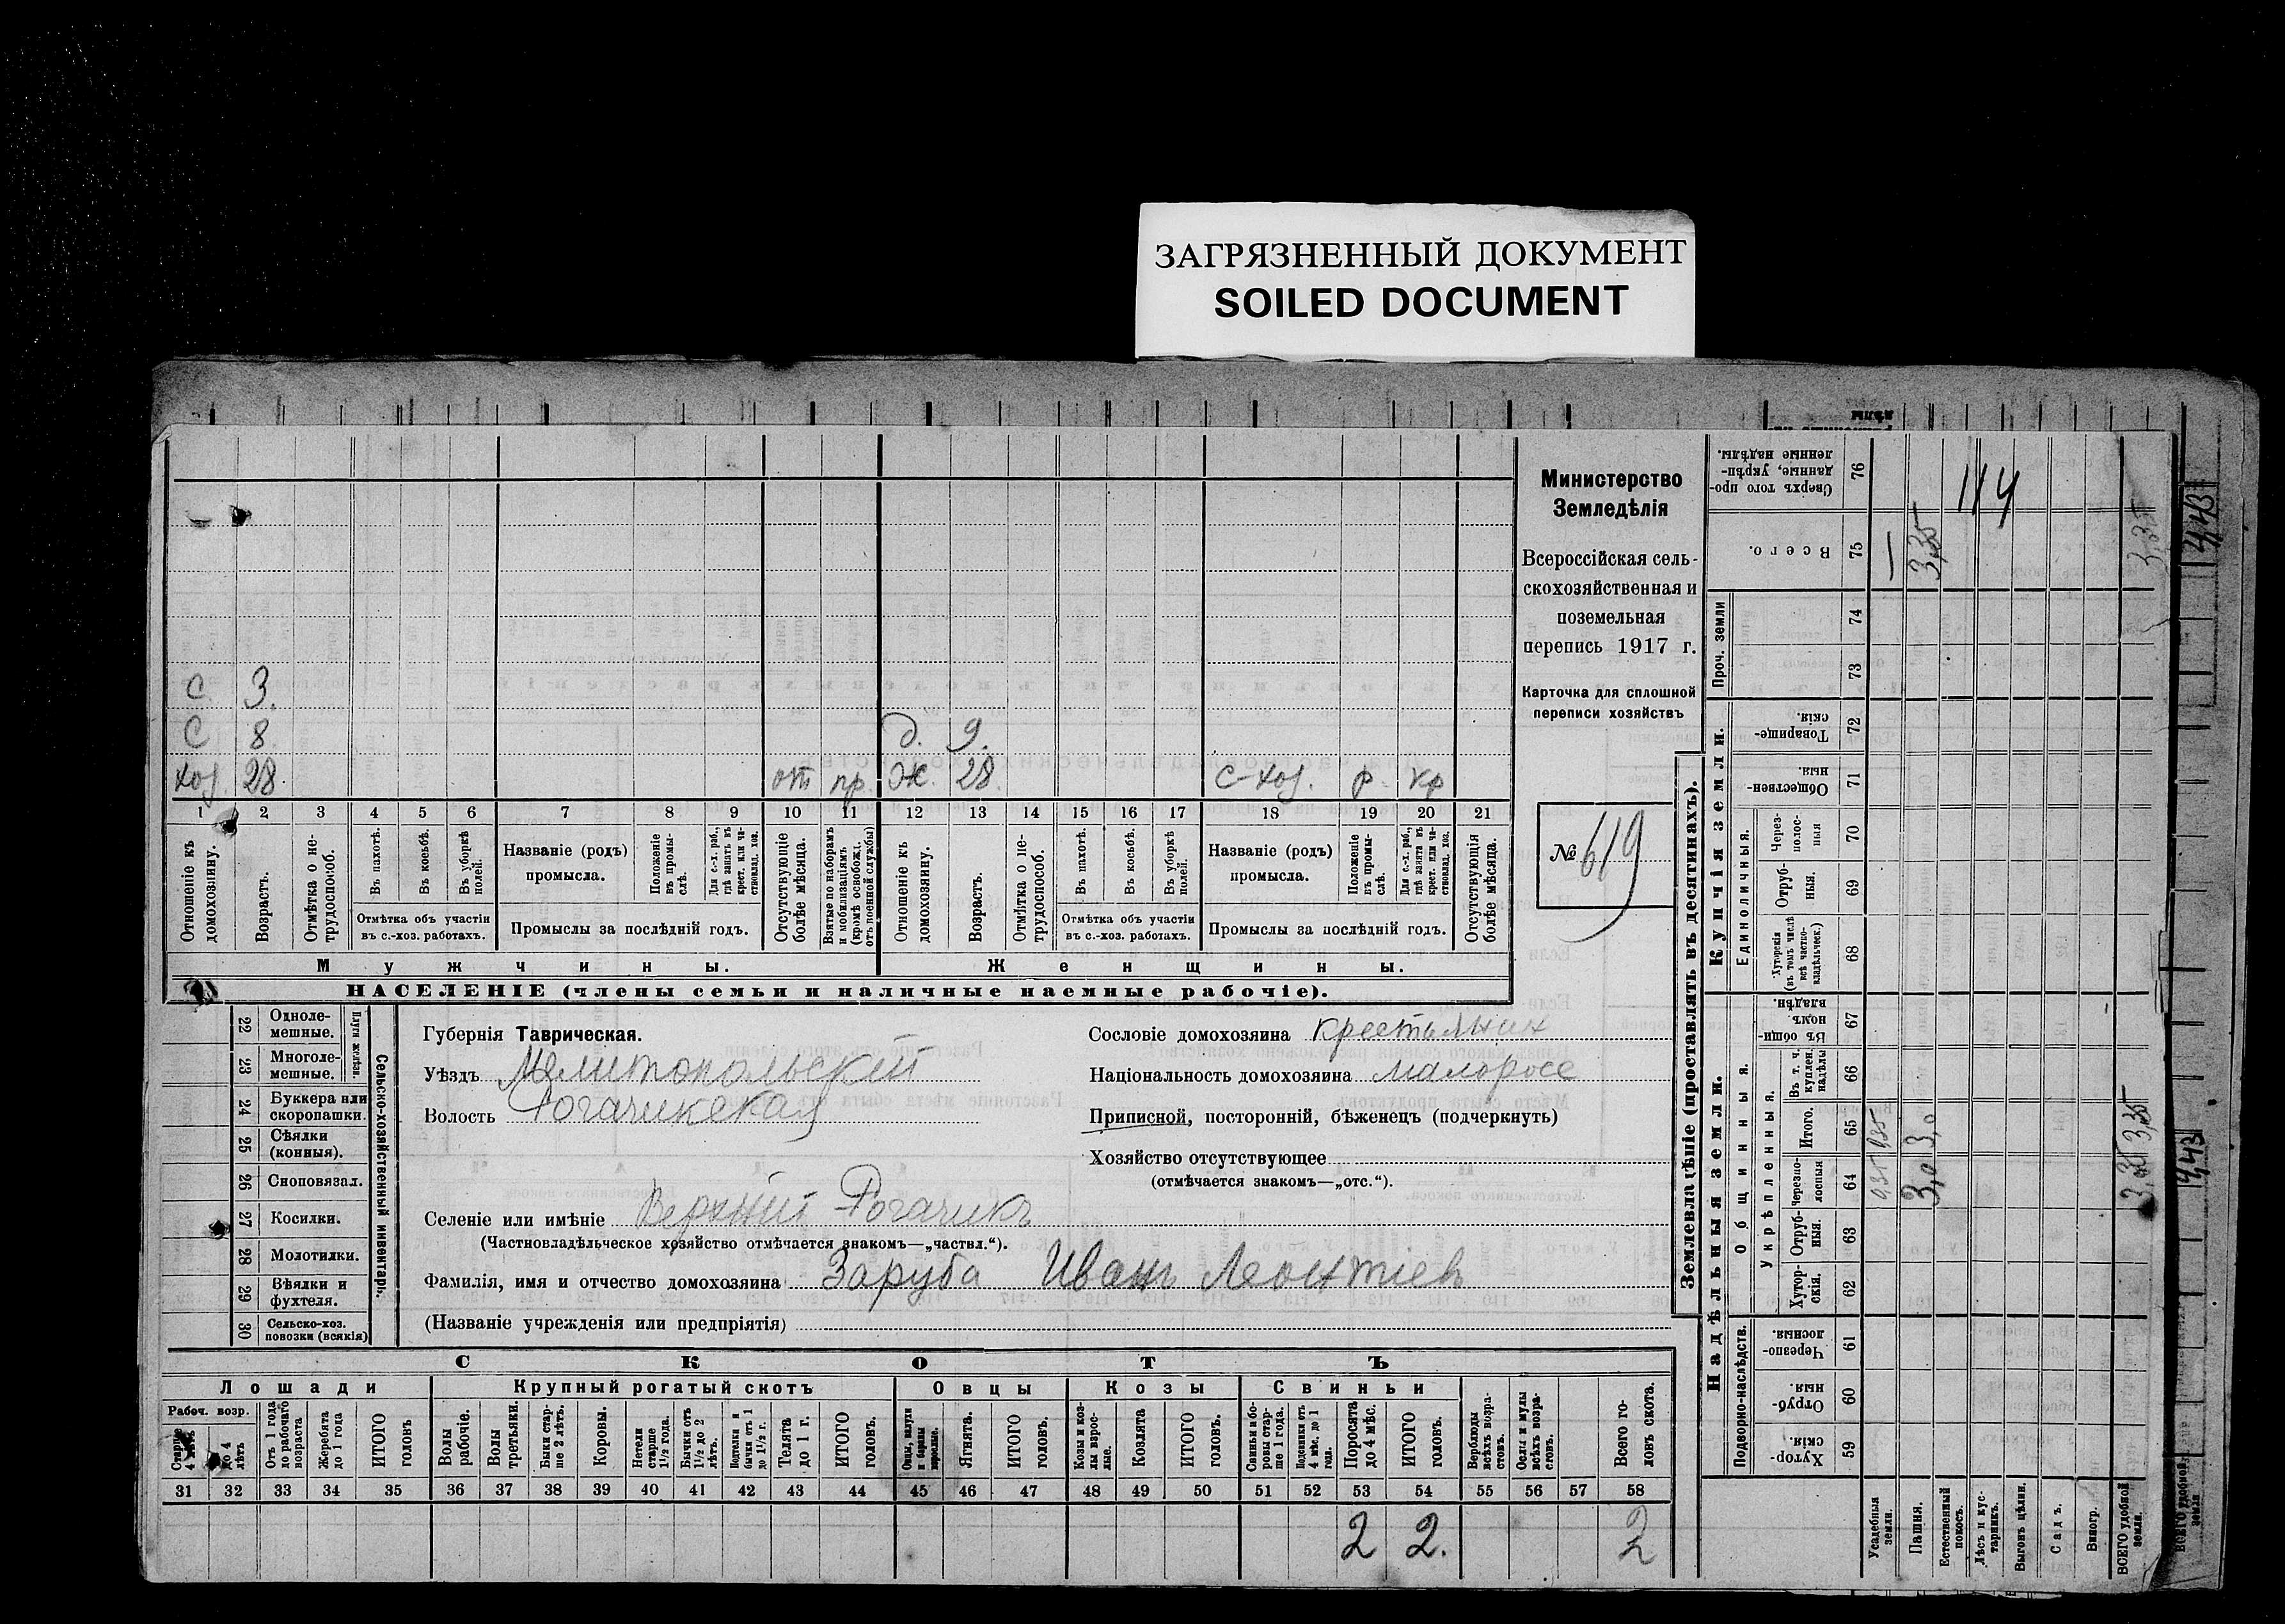 ЗАГРЯЗНЕННЫЙ ДОКУМЕНТ
SOILED DOCUMENT
С. 3.
С 8 д. 9.
хоз. 28. от пр. Ж. 28. с-хоз. р. кр
1 2 3 4 5 6 7 8 9 10 11 12 13 14 15 16 17 18 19 20 21
Отношеніе къ домохозяину.
Возрастъ.
Отмѣтка о не-трудоспособ.
Въ пахотѣ.
Въ косьбѣ.
Въ уборкѣ полей.
Отмѣтка объ участіи
въ с.-хоз. работахъ.
Названіе (родъ)
промысла.
Положеніе въ промы-слѣ.
Для с.-х. раб., гдѣ занятъ въ крест. или ча-стновлад. хоз.
Промыслы за послѣдній годъ.
Отсутствующіе болѣе мѣсяца.
Взятые по наборамъ и мобилизаціямъ (кромѣ освобожд. отъ военной службы)
Отношеніе къ домохозяину.
Возрастъ.
Отмѣтка о не-трудоспособ.
Въ пахотѣ.
Въ косьбѣ.
Въ уборкѣ полей.
Отмѣтка объ участіи
въ с.-хоз. работахъ.
Названіе (родъ)
промысла.
Положеніе въ промы-слѣ.
Для с.-х. раб., гдѣ занята въ крест. или ча-стновлад. хоз.
Промыслы за послѣдній годъ.
Отсутствующія болѣе мѣсяца.
Мужчины. Женщины.
НАСЕЛЕНІЕ (члены семьи и наличные наемные рабочіе).
Министерство
Земледѣлія
Всероссійская сель-
скохозяйственная и
поземельная
перепись 1917 г.
Карточка для сплошной
переписи хозяйствъ
№ 619
22 Одноле-мешные.
23 Многоле-мешные.
Плуги желѣзн.
24 Буккера или скоропашки.
25 Сѣялки (конныя).
26 Сноповязал.
27 Косилки.
28 Молотилки.
29 Вѣялки и фухтеля.
30 Сельско-хоз. повозки (всякія)
Сельско-хозяйственный инвентарь.
Губернія Таврическая.
Уѣздъ Мелитопольскій
Волость Рогачикская
Селеніе или имѣніе Верхній Рогачикъ
(Частновладѣльческое хозяйство отмѣчается знакомъ—„частвл.“).
Фамилія, имя и отчество домохозяина Заруба Иванъ Леонтіев
(Названіе учрежденія или предпріятія)
Сословіе домохозяина
Національность домохозяина малоросс
Приписной, посторонній, бѣженец (подчеркнуть)
Хозяйство отсутствующее
(отмѣчается знакомъ—„отс.“).
СКОТЪ
Лошади Крупный рогатый скотъ Овцы Козы Свиньи
Рабоч. возр.
Старше 4 лѣтъ
до 4 лѣтъ
Отъ 1 года до рабочаго возраста
Жеребята до 1 года
ИТОГО головъ
Волы рабочіе.
Волы третьяки.
Быки стар-ше 2 лѣтъ.
Коровы.
Нетели старше 1½ года.
Бычки отъ 1½ до 2 лѣтъ.
Телята до 1 г.
ИТОГО головъ.
Ягнята.
ИТОГО головъ.
Козы и коз-лы взрос-лые.
Козлята
ИТОГО головъ.
Свиньи и бо-ровы стар-ше 1 года.
Подсвинки отъ 4 мѣс. до 1 года.
Поросята до 4 мѣс.
ИТОГО головъ.
Верблюды всѣхъ возра-стовъ.
Ослы и мулы всѣхъ возра-стовъ.
Всего го-ловъ скота.
31 32 33 34 35 36 37 38 39 40 41 42 43 44 45 46 47 48 49 50 51 52 53 54 55 56 57 58
2 2. 2
Землевладѣніе (проставлять въ десятинахъ).
Надѣльныя земли. Купчія земли.
Подворно-наслѣдств.
Общинныя.
Укрѣпленныя.
Единоличныя.
Проч. земли
Сверхъ того про-данные, укрѣп-ленные надѣлы. 76 114
Всего. 75 — 3,35 3,35
74
73
Товарище-скія. 72
Обществен-ныя. 71
Через-полос-ныя 70
Отруб-ныя. 69
Хуторскія (въ томъ числѣ всѣ частно-владѣльческ.) 68
Въ общи-номъ владѣн. 67
Въ т. ч. куплен. надѣлы 66
Итого. 65 0,35 3,0 3,35
Черезпо-лосныя 64 0,35 3,0 3,35
Отруб-ныя. 63
Хутор-скія. 62
Черезпо-лосныя. 61
Отруб-ныя. 60
Хутор-скія. 59
Усадебныя земли.
Пашня.
Естественный покосъ.
Лѣсъ и кус-тарникъ.
Выгонъ цѣлин.
Садъ.
Виногр.
ВСЕГО удобной земли.
ВСЕГО удобной земли
4,43
4,43